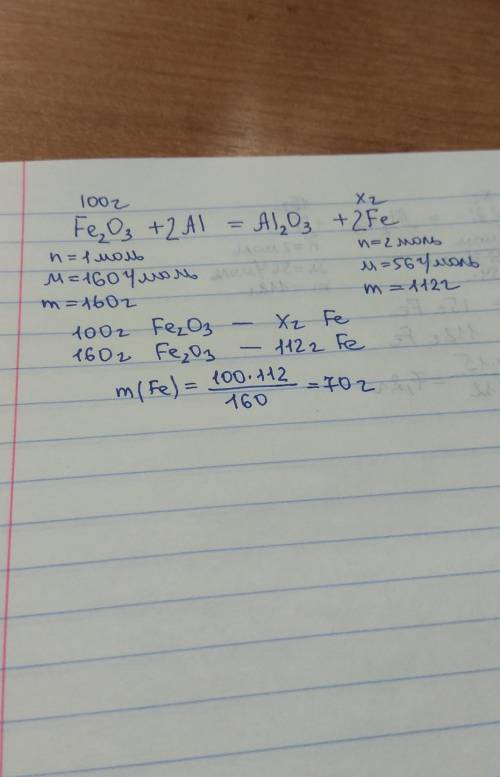 100г хг
Fe₂O₃ + 2Al = Al₂O₃ + 2Fe
n = 1 моль n = 2 моль
М = 160 г/моль М = 56 г/моль
m = 160г m = 112г
100г Fe₂O₃ — хг Fe
160г Fe₂O₃ — 112г Fe
m(Fe) = 100·112 / 160 = 70г